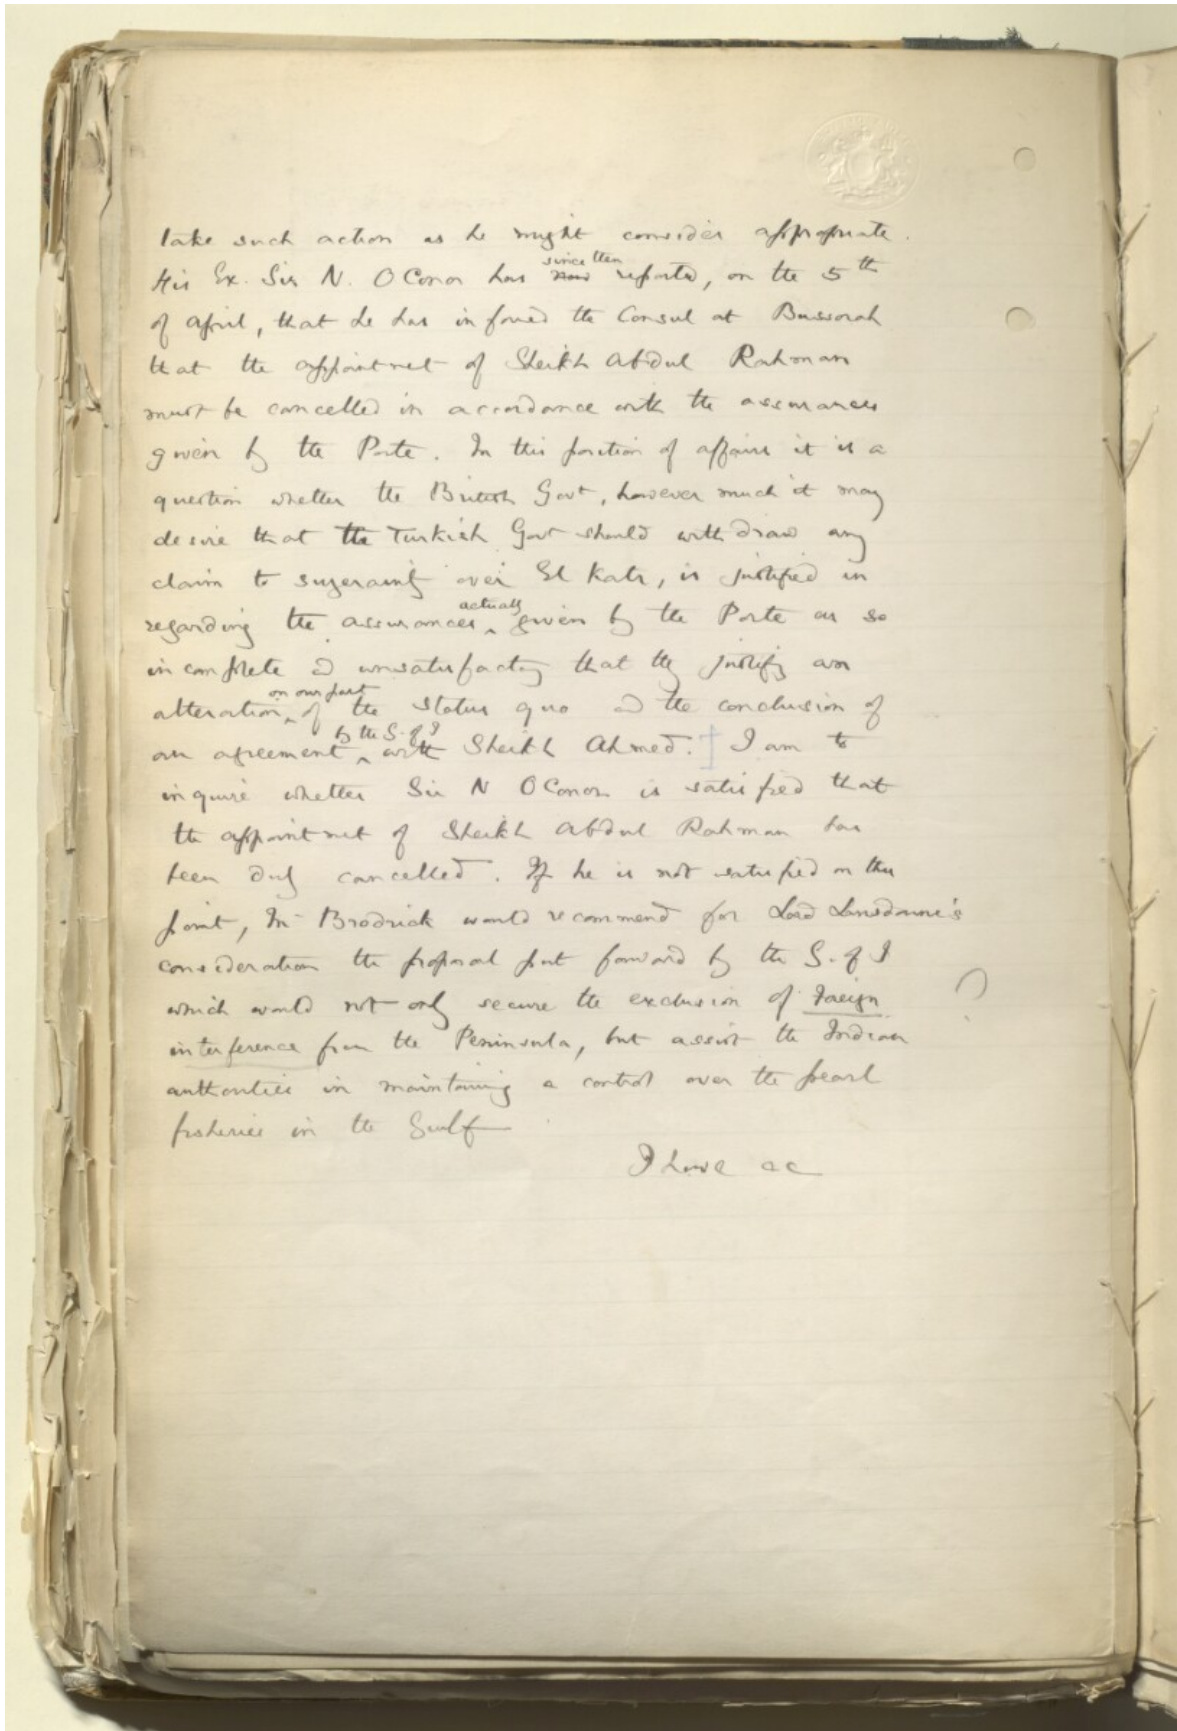 take such action as he might consider appropriate.
His Ex. Sir N. OConor has since then now reported, on the 5th
of April, that he has informed the Consul at Bussorah
that the appointment of Sheikh Abdul Rahman
must be cancelled in accordance with the assurances
given by the Porte. In this position of affairs it is a
question whether the British Govt, however much it may
desire that the Turkish Govt should withdraw any
claim to suzerainty over El Katr, is justified in
regarding the assurances actually given by the Porte as so
incomplete & unsatisfactory that they justify an
alteration on our part of the status quo and the conclusion of
an agreement by the G. of I with Sheikh Ahmed. I am to
inquire whether Sir N OConor is satisfied that
the appointment of Sheikh Abdul Rahman has
been duly cancelled. If he is not satisfied on this
point, Mr Brodrick would recommend for Lord Lansdowne's
consideration the proposal put forward by the G. of I
which would not only secure the exclusion of foreign ?
interference from the Peninsula, but assist the Indian
authorities in maintaining a control over the pearl
fisheries in the Gulf
I have &c